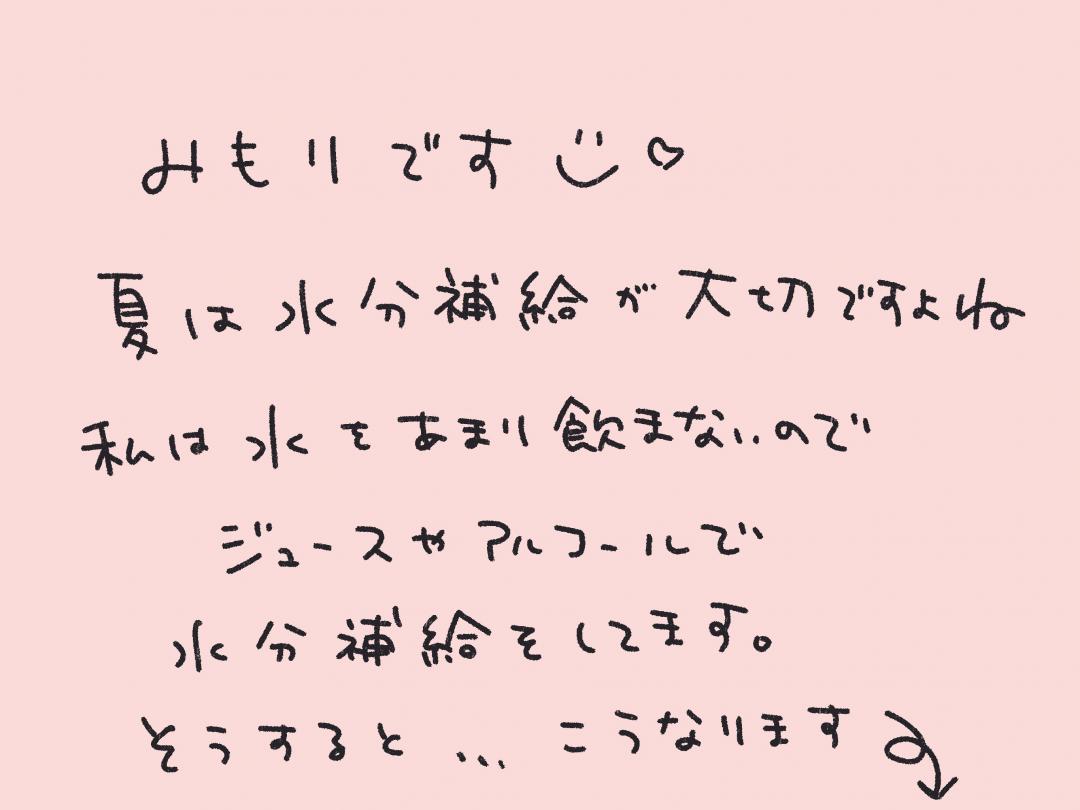 みもりです
夏は水分補給が大切ですよね
私は水をあまり飲まないので
ジュースやアルコールで
水分補給をしてます。
そうすると... こうなります